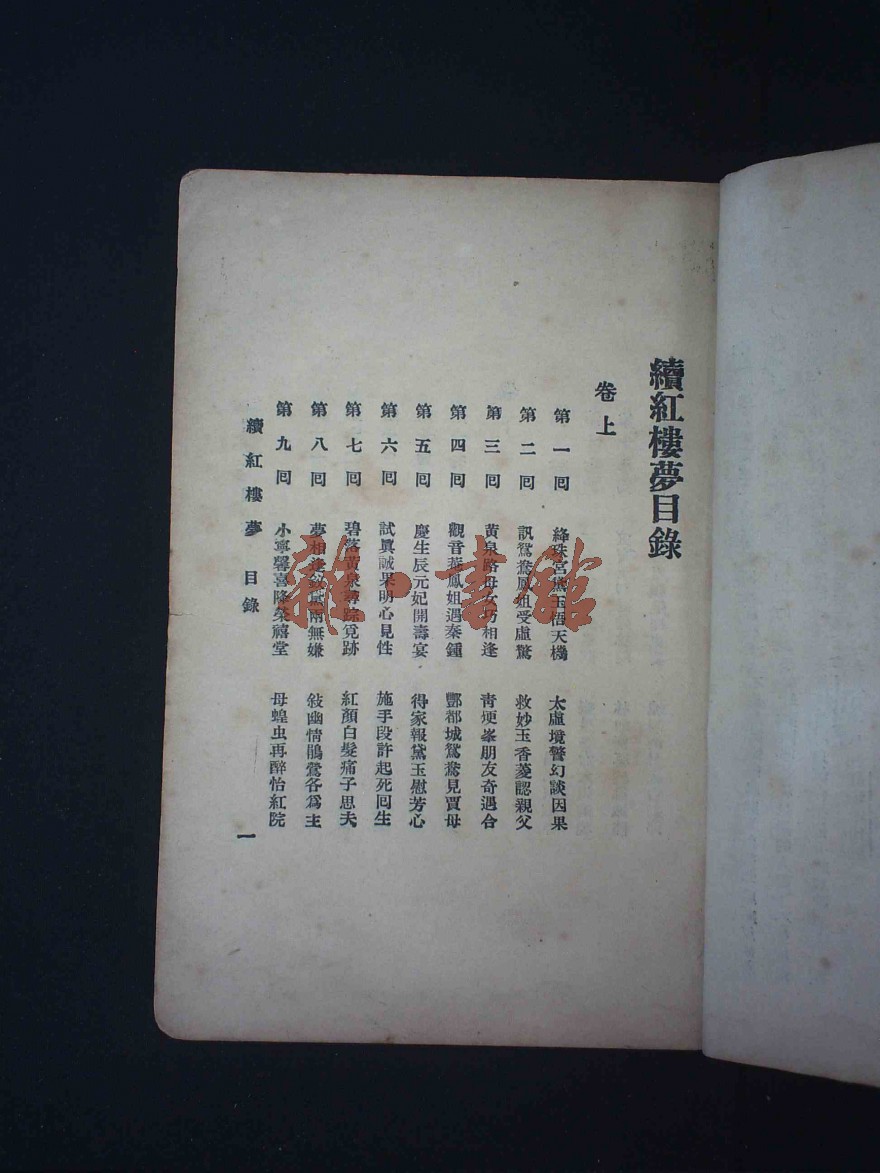 續紅樓夢目錄
卷上
第一囘 絳珠宮黛玉悟天機 太虛境警幻談因果
第二囘 訊鴛鴦鳳姐受虛驚 救妙玉香菱認親父
第三囘 黃泉路母女巧相逢 青埂峯朋友奇遇合
第四囘 觀音菴鳳姐遇秦鍾 酆都城鴛鴦見賈母
第五囘 慶生辰元妃開壽宴 得家報黛玉慰芳心
第六囘 試眞誠果明心見性 施手段許起死囘生
第七囘 碧落黃泉尋踪覓跡 紅顏白髮痛子思夫
第八囘 夢相逢釵黛兩無嫌 敍幽情鵑鶯各爲主
第九囘 小寧馨喜降榮禧堂 母蝗虫再醉怡紅院
續紅樓夢 目錄 一
雜·書館